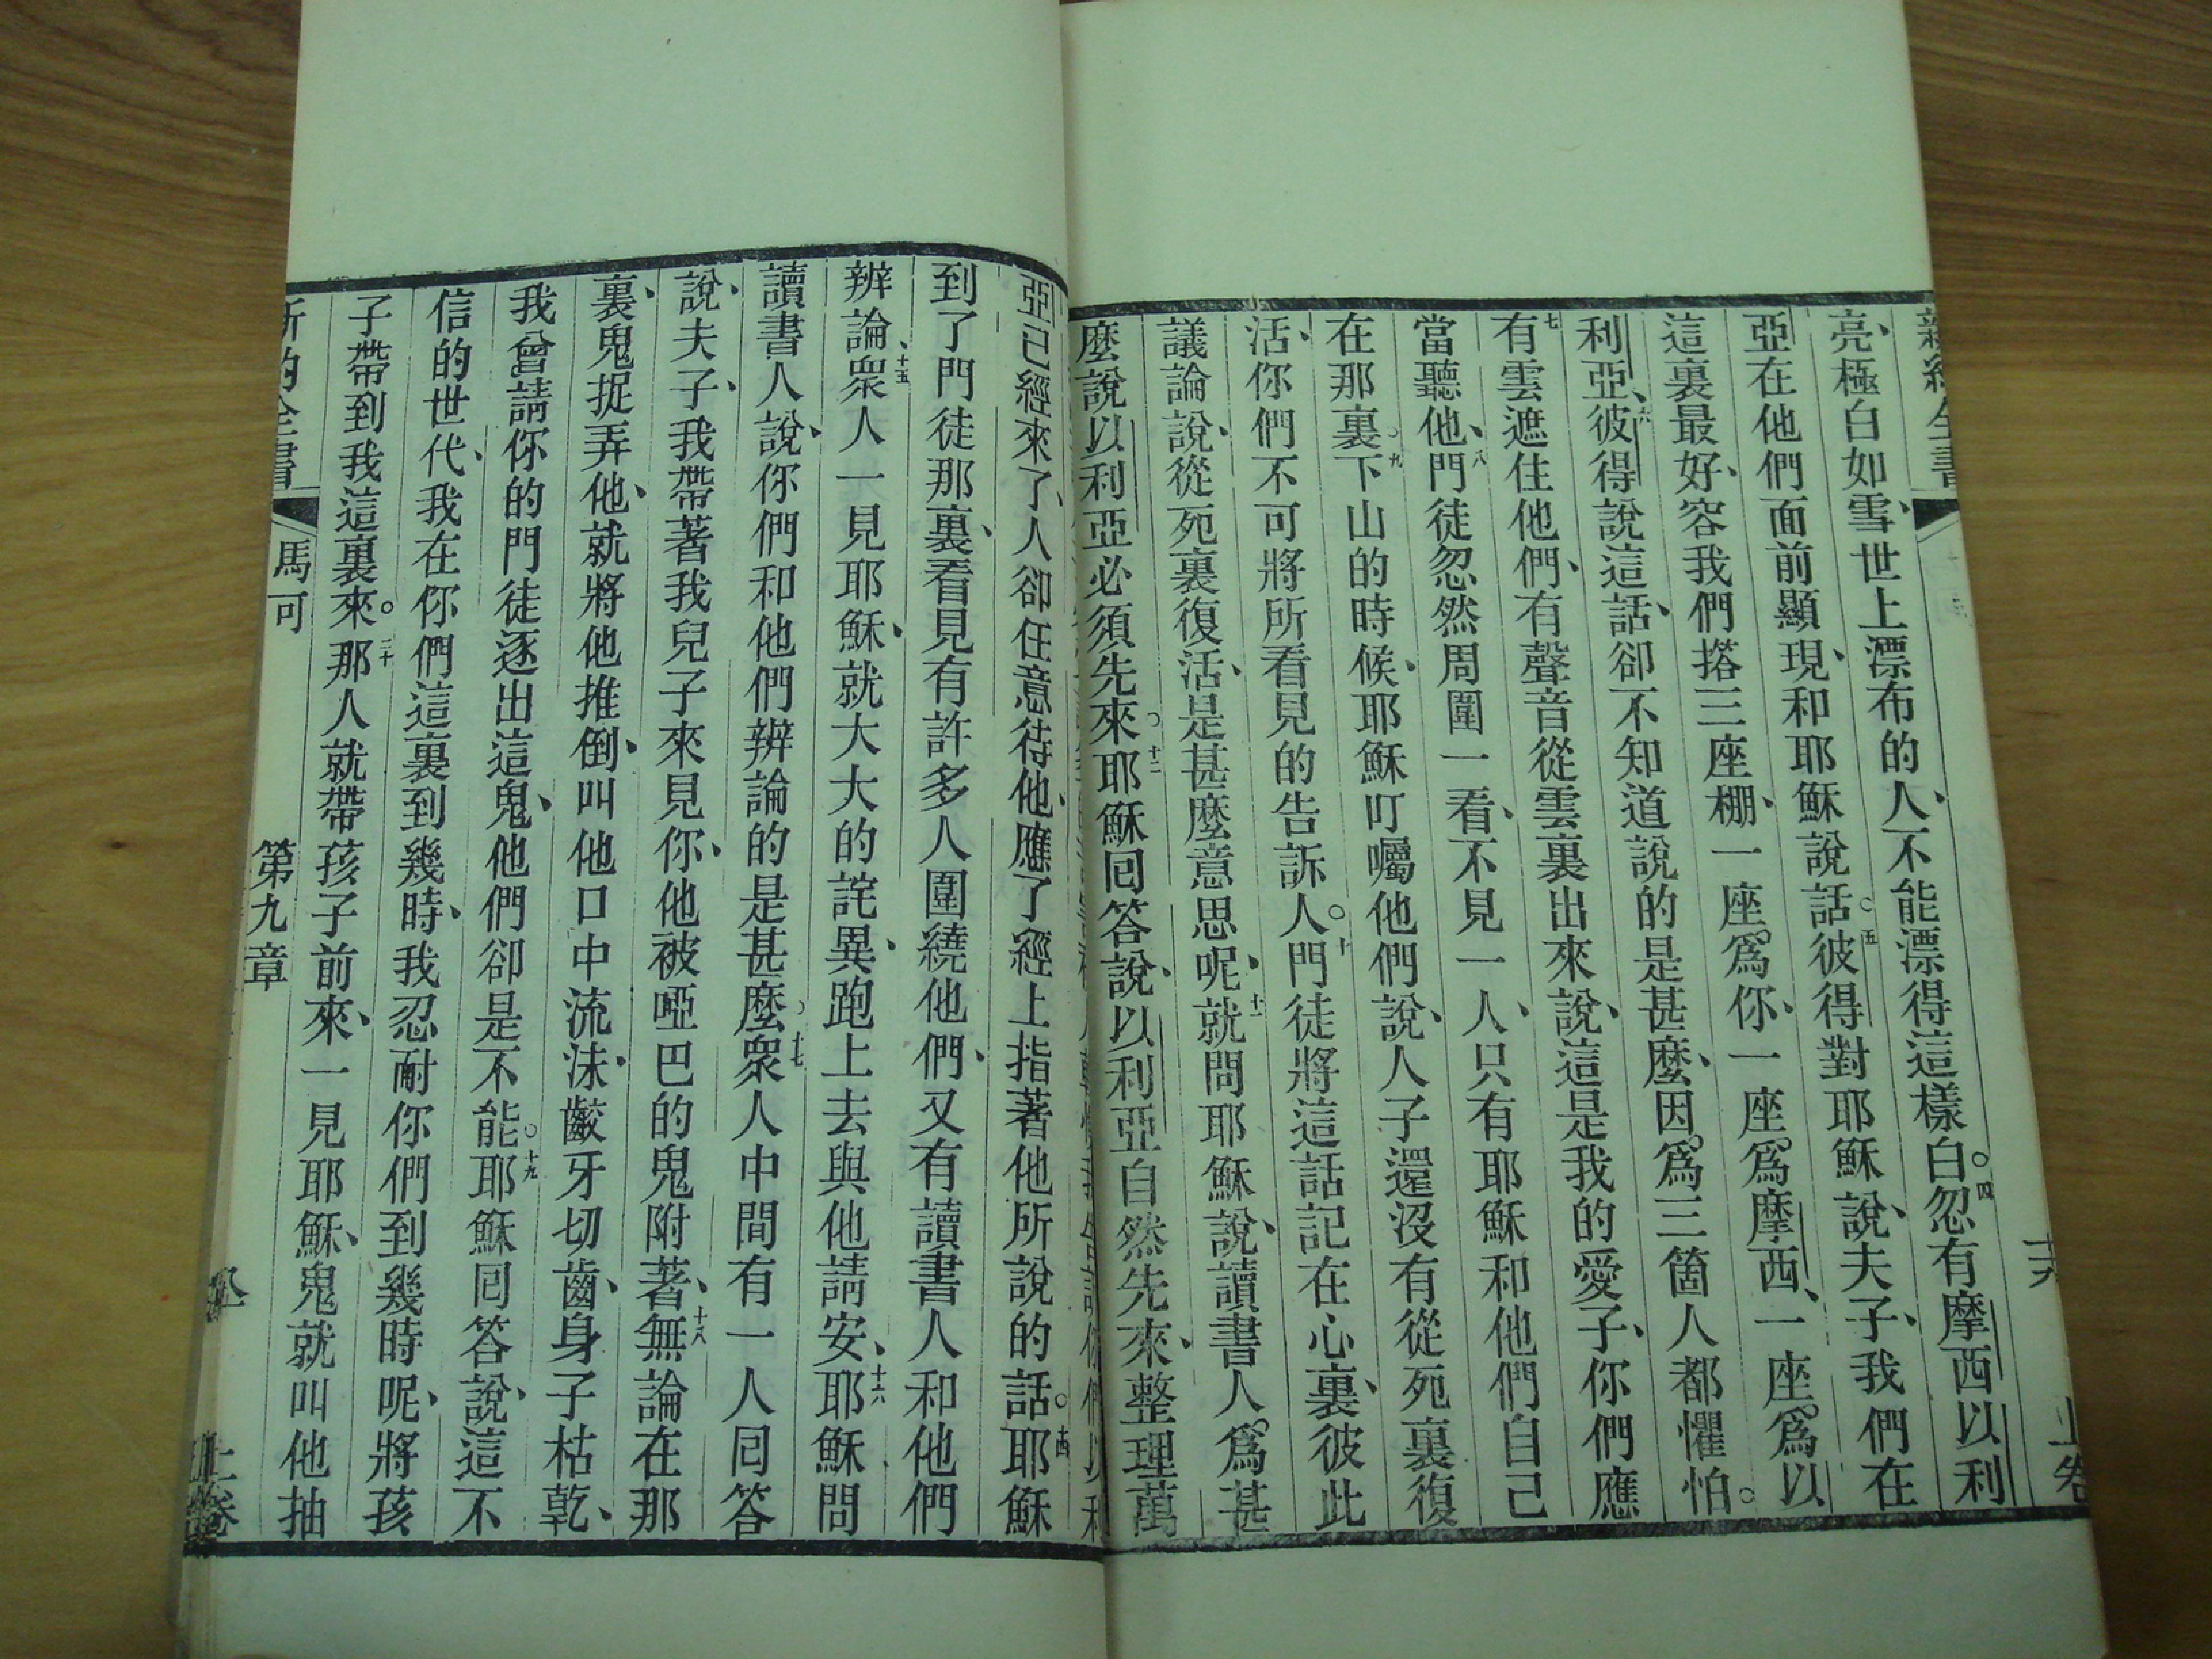 亮、極白如雪、世上漂布的人、不能漂得這樣白。四忽有摩西以利
亞在他們面前顯現、和耶穌說話。五彼得對耶穌說、夫子、我們在
這裏最好、容我們搭三座棚、一座爲你、一座爲摩西、一座爲以
利亞、六彼得說這話、卻不知道說的是甚麼、因爲三箇人都懼怕。
七有雲遮住他們、有聲音從雲裏出來說、這是我的愛子、你們應
當聽他、八門徒忽然周圍一看、不見一人、只有耶穌和他們自己
在那裏。九下山的時候、耶穌叮囑他們說、人子還沒有從死裏復
活、你們不可將所看見的告訴人。十門徒將這話記在心裏、彼此
議論說、從死裏復活、是甚麼意思呢、十一就問耶穌說、讀書人爲甚
麼說以利亞必須先來。十二耶穌囘答說、以利亞自然先來、整理萬
亞已經來了、人卻任意待他、應了經上指著他所說的話。十四耶穌
到了門徒那裏、看見有許多人圍繞他們、又有讀書人和他們
辨論、十五衆人一見耶穌、就大大的詫異、跑上去與他請安、十六耶穌問
讀書人說、你們和他們辨論的是甚麼。十七衆人中間有一人囘答
說、夫子、我帶著我兒子來見你、他被啞巴的鬼附著、十八無論在那
裏、鬼捉弄他、就將他推倒、叫他口中流沫、齩牙切齒、身子枯乾、
我曾請你的門徒逐出這鬼、他們卻是不能。十九耶穌囘答說、這不
信的世代、我在你們這裏到幾時、我忍耐你們到幾時呢、將孩
子帶到我這裏來。二十那人就帶孩子前來、一見耶穌、鬼就叫他抽
馬可 第九章